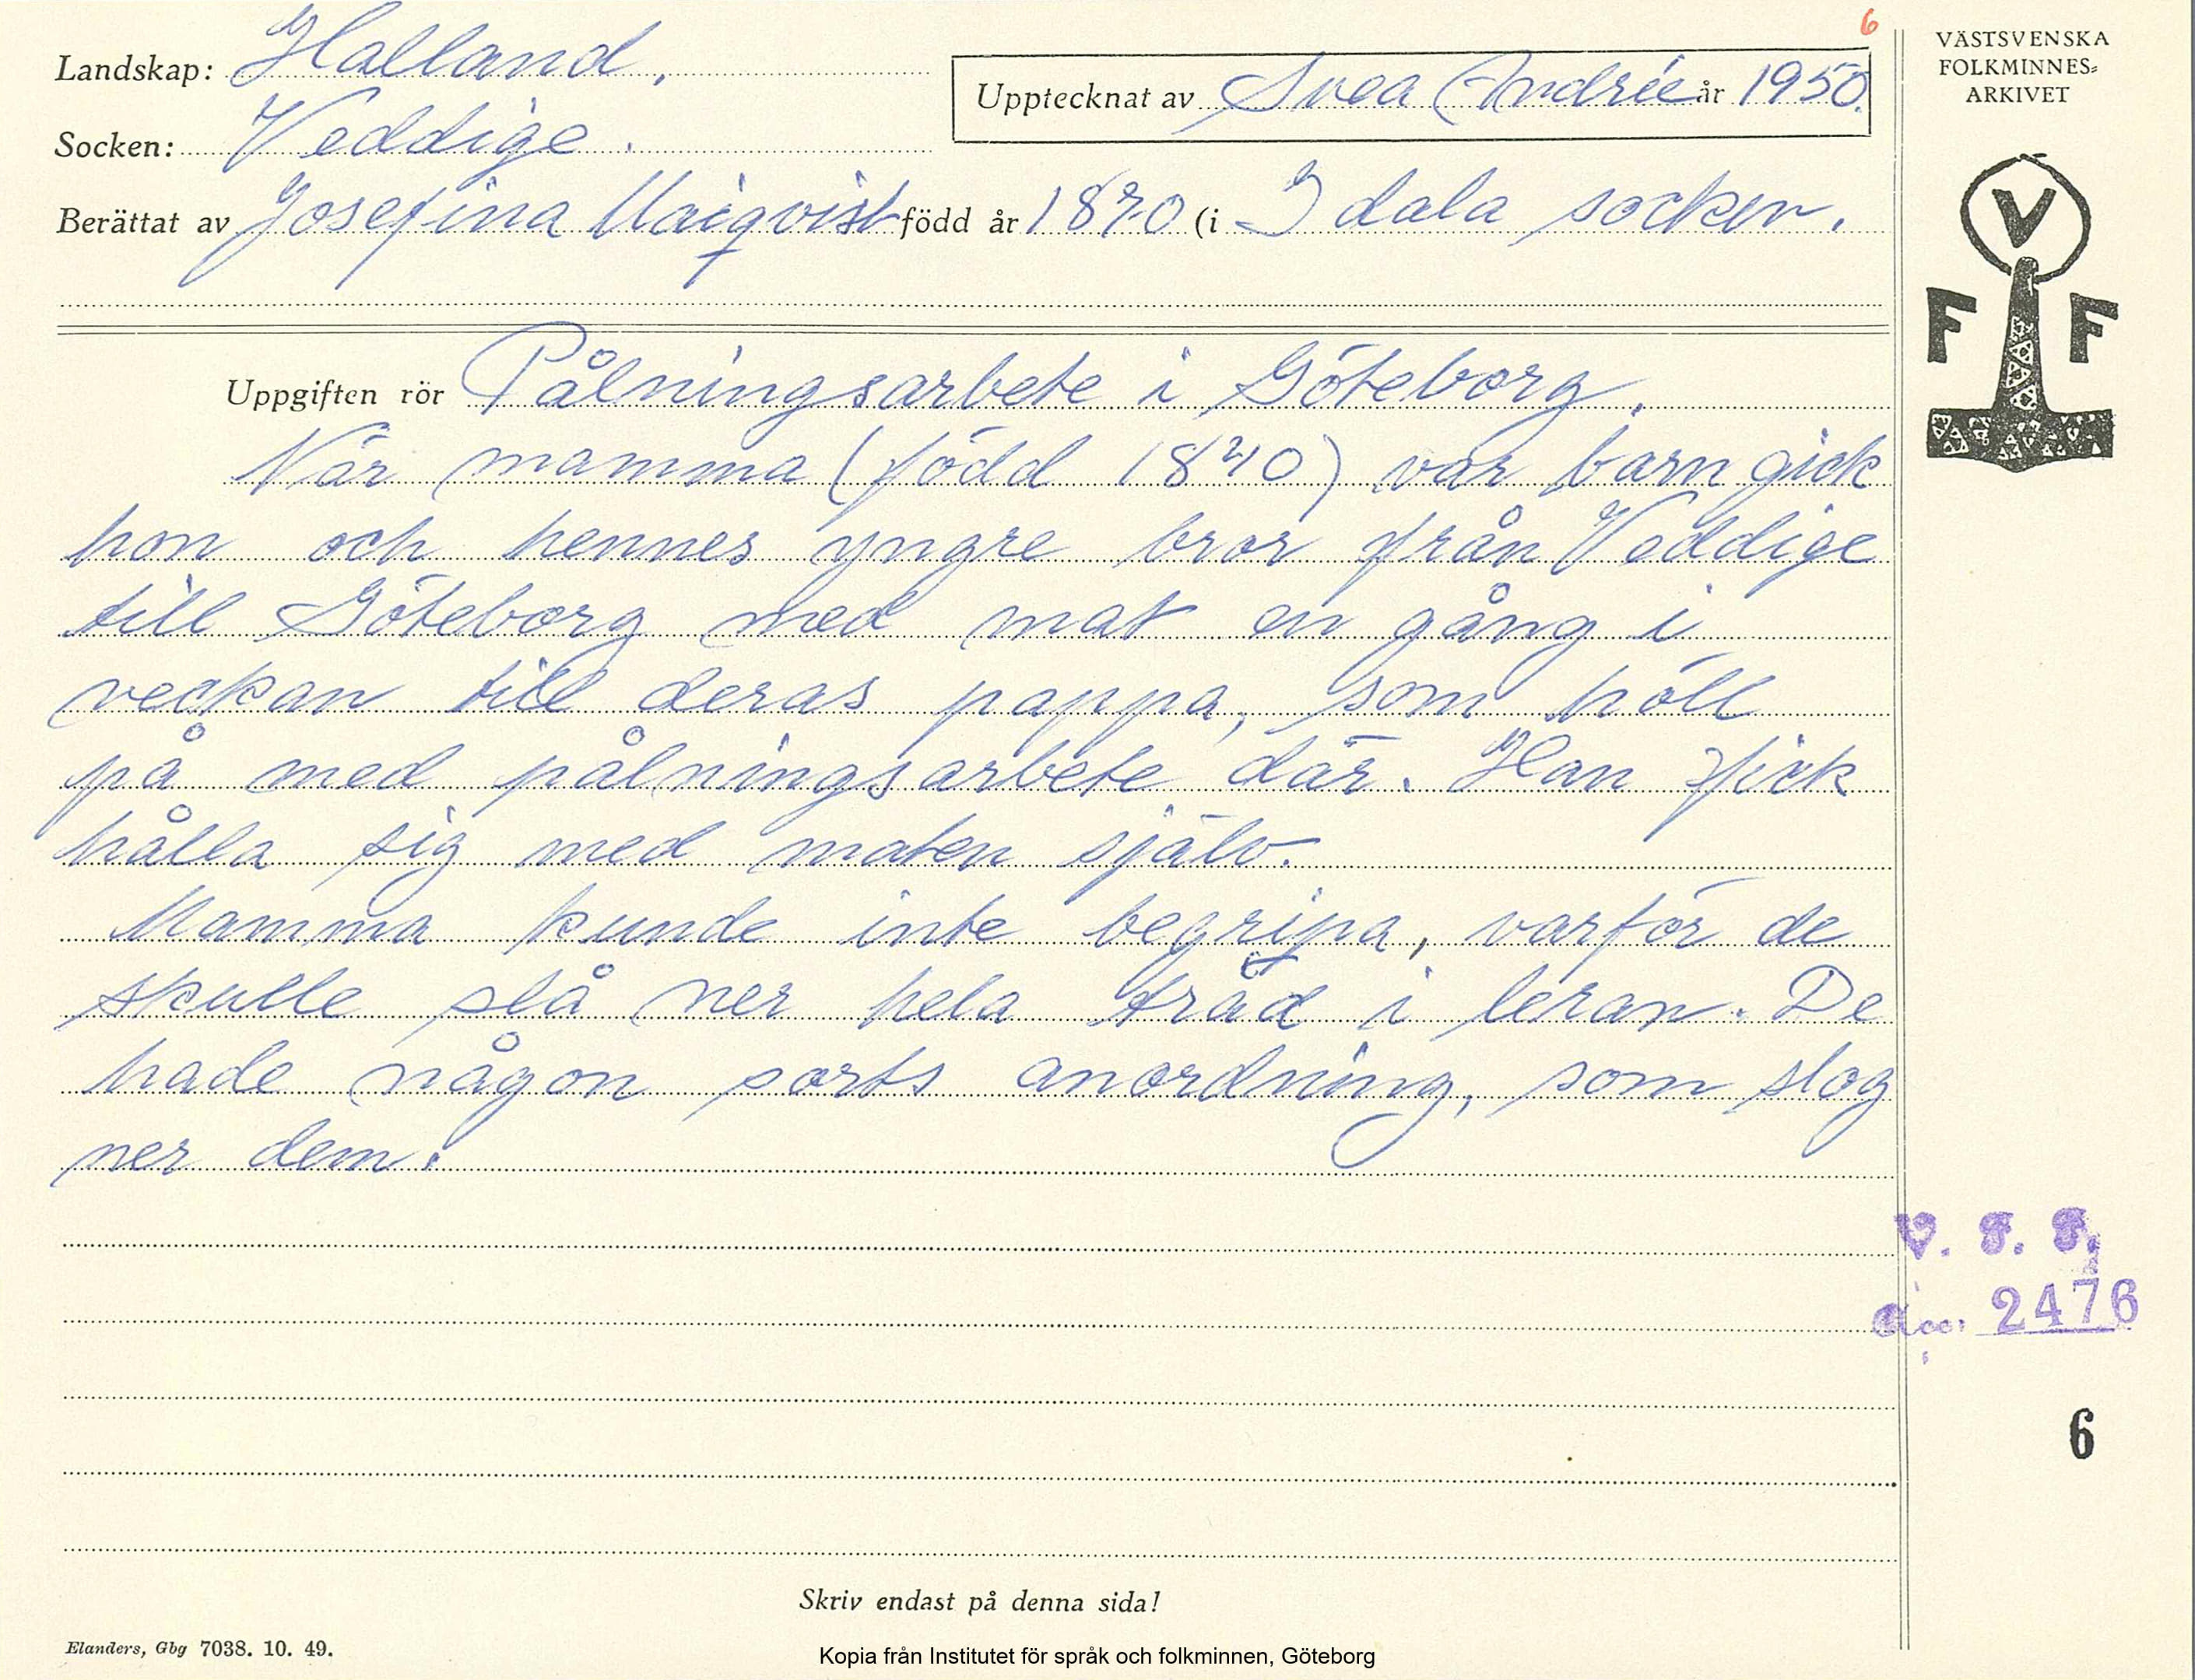 6
Landskap: Halland.
Upptecknat av Svea Andrée år 1950.
Socken: Veddige.
Berättat av Josefina född år 1870 (i Idala socken.
Uppgiften rör Pålningsarbete i Göteborg.
När mamma (född 1840) var barn gick
hon och hennes yngre bror från Veddige
till Göteborg med mat en gång i
veckan till deras pappa, som höll
på med pålningsarbete där. Han fick
hålla sig med maten själv.
Mamma kunde inte begripa, varför de
skulle slå ner hela träd i leran. De
hade någon sorts anordning, som slog
ner dem.
Skriv endast på denna sida!
Elanders, Gbg 7038. 10. 49.
Kopia från Institutet för språk och folkminnen, Göteborg
VÄSTSVENSKA
FOLKMINNES=
ARKIVET
V
F F
V. F. F.
acc: 2476
6